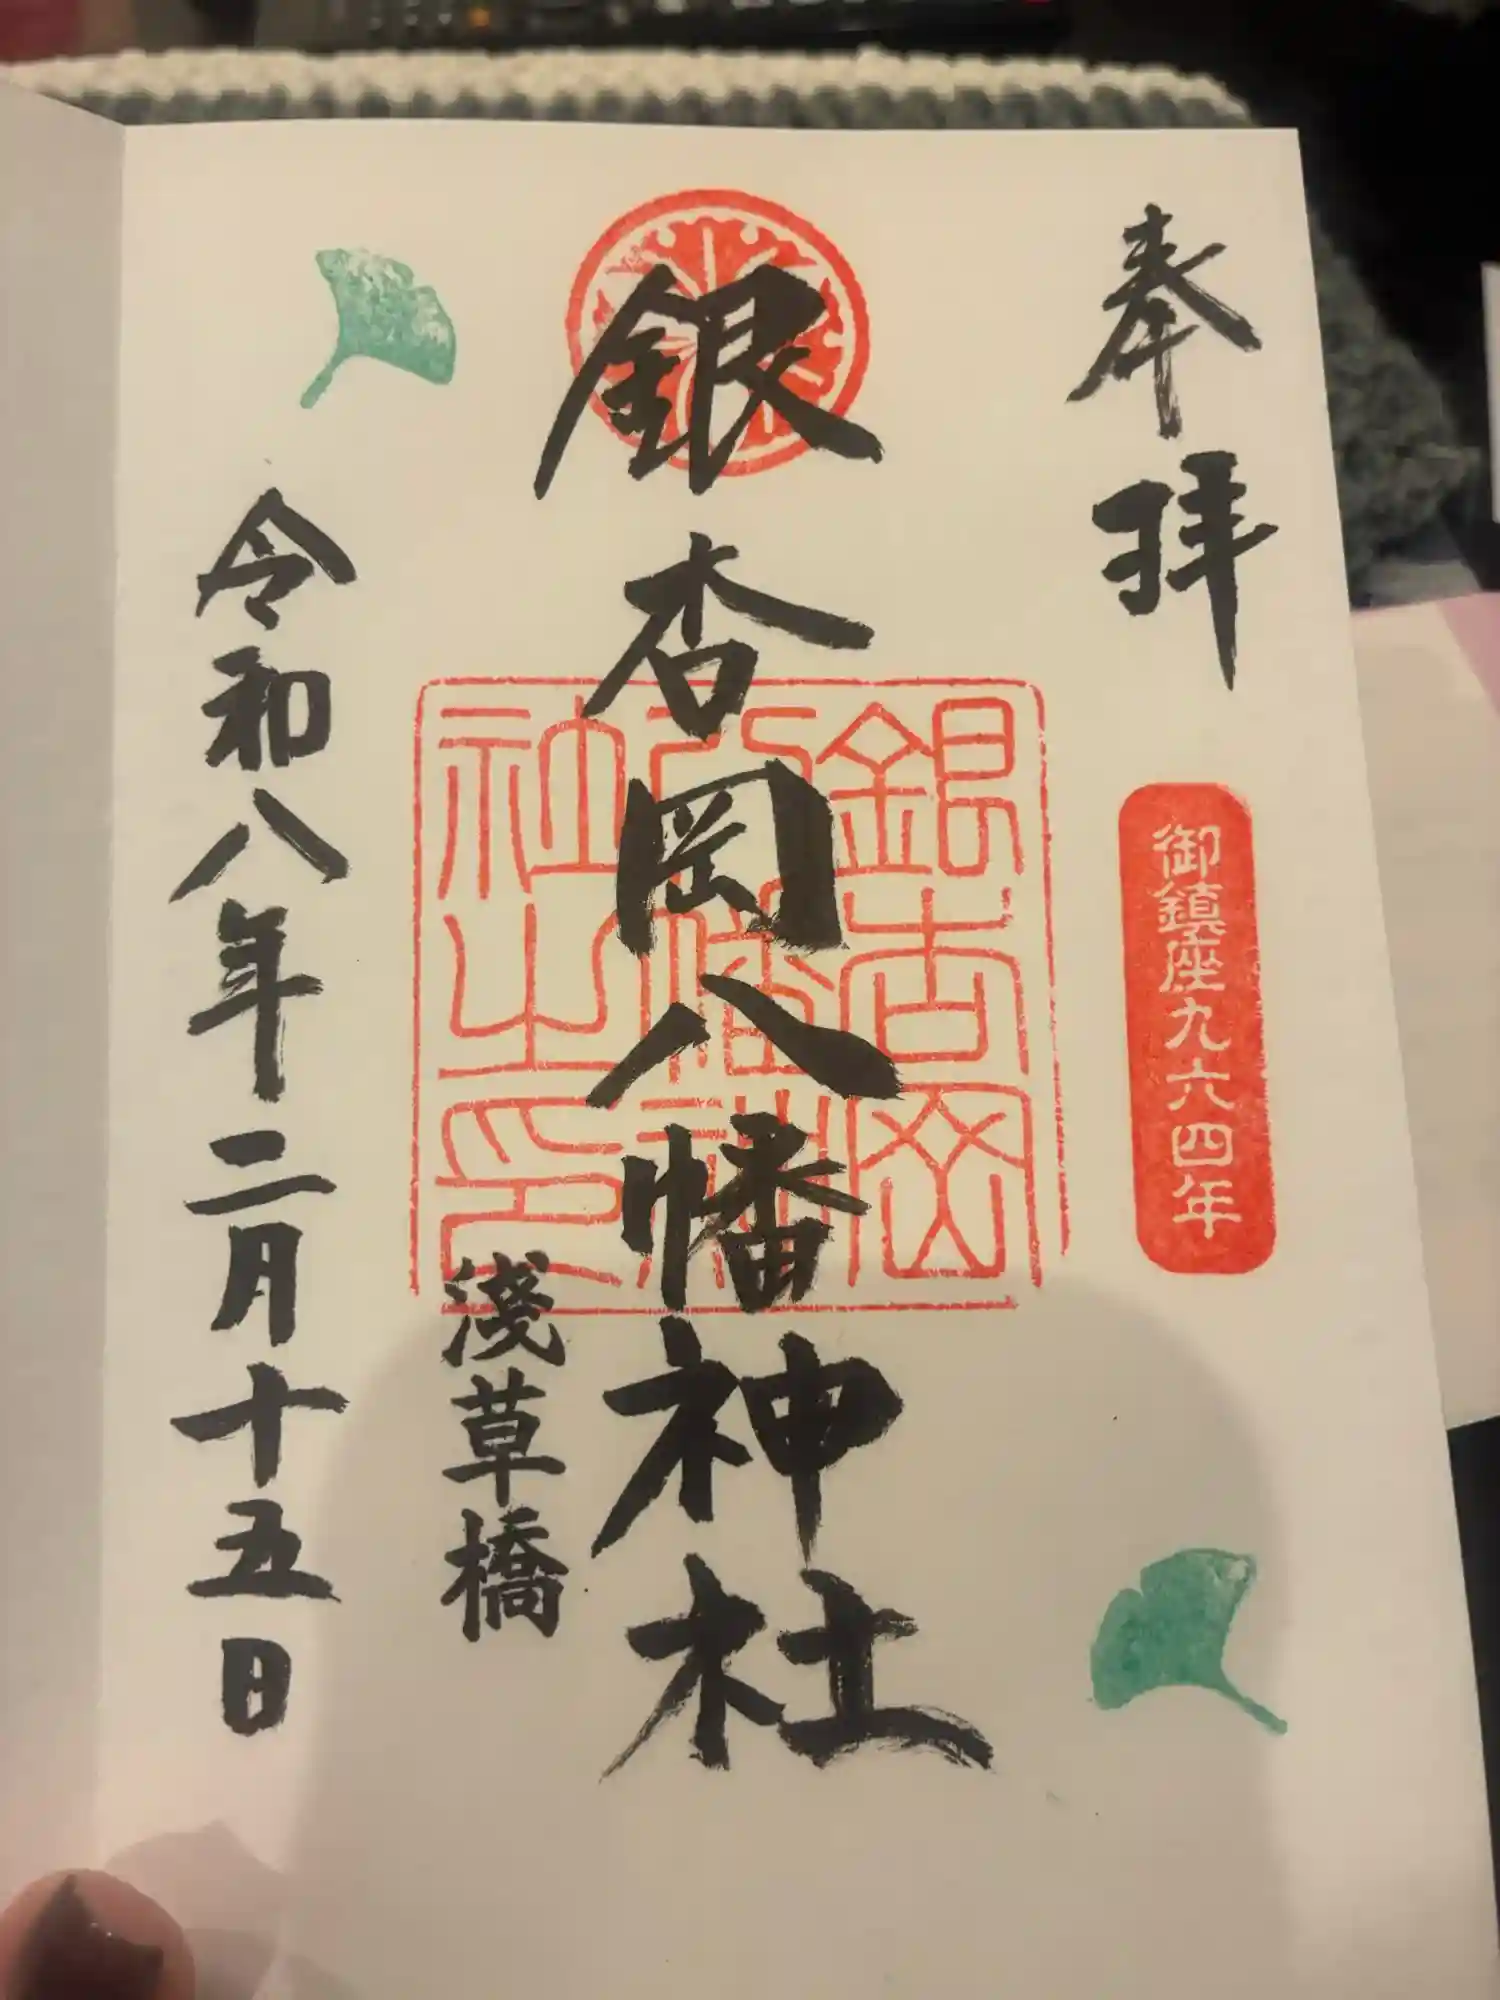 奉拝
御鎮座九六四年
銀杏岡八幡神社
銀杏岡
八幡神
社之印
淺草橋
令和八年二月十五日